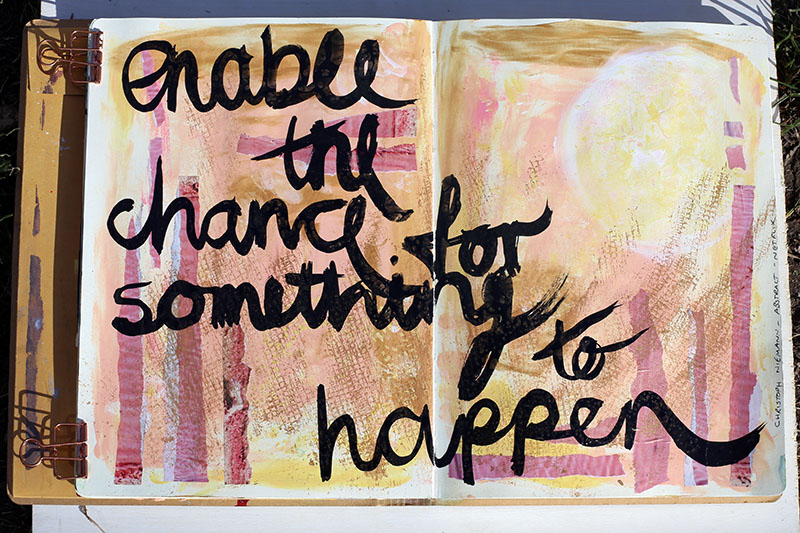 enable
the
chance for
something
to
happen
CHRISTOPH NIEMANN - ABSTRACT - NETFLIX